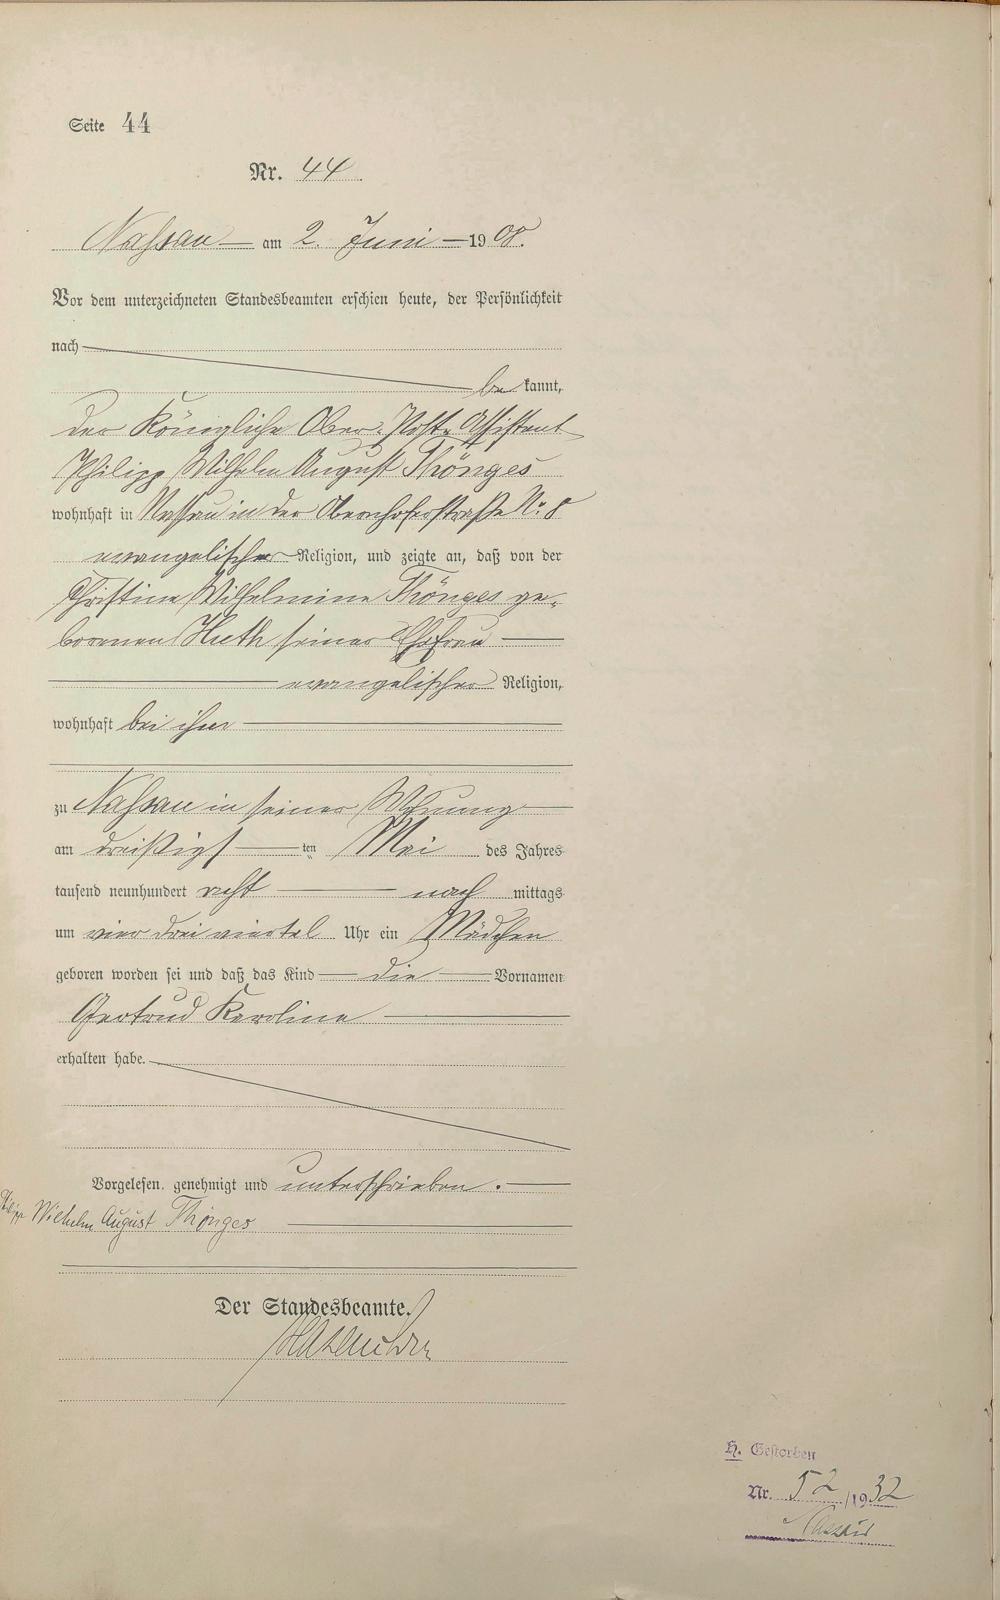 Seite 44
Nr. 44
Nassau am 2. Juni 1908.
Vor dem unterzeichneten Standesbeamten erschien heute, der Persönlichkeit
nach
be kannt,
der Königliche Ober-Post-Assistent
Philipp Wilhelm August Thönges
wohnhaft in Nassau in der Obernhoferstraße Nr. 8
evangelischer Religion, und zeigte an, daß von der
Christine Wilhelmine Thönges ge-
borenen Huth seiner Ehefrau
evangelischer Religion,
wohnhaft bei ihm
zu Nassau in seiner Wohnung
am dreißigs ten Mai des Jahres
tausend neunhundert acht nach mittags
um vier drei viertel Uhr ein Mädchen
geboren worden sei und daß das Kind die Vornamen
Gertrud Karoline
erhalten habe.
Vorgelesen, genehmigt und unterschrieben.
Philipp Wilhelm August Thönges
Der Standesbeamte.
H. Gestorben
Nr. 52/1932
Nassau